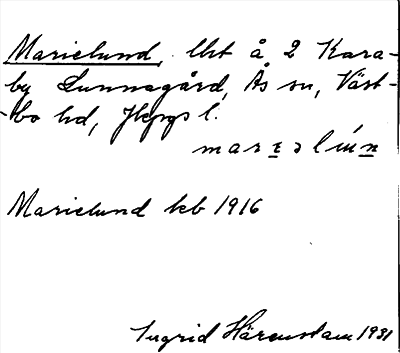 Marielund, lht å 2 Kara-
by Lunnagård, Ås sn, Väst-
bo hd, Jkpgs l.
marɛəlún
Marielund kb 1916
Ingrid Härenstam 1931